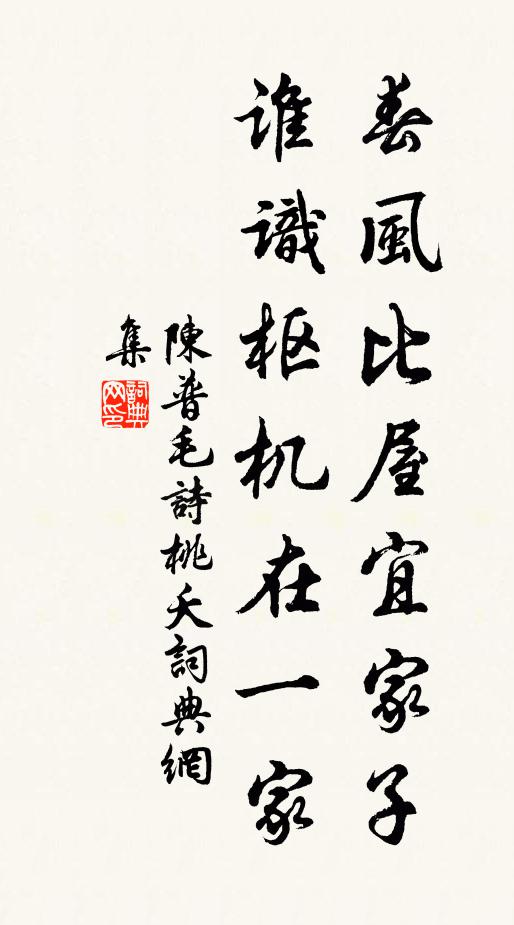 春風比屋宜家子
谁識枢机在一家
陳普毛詩桃夭詞典網
集
詞典网印